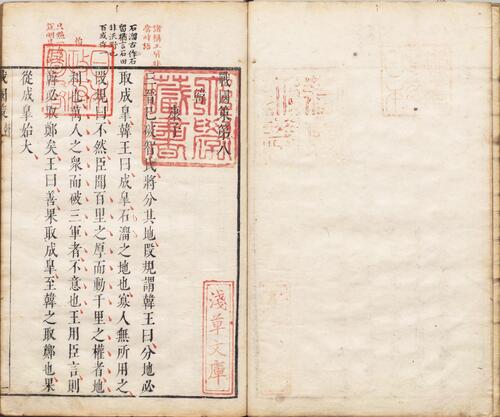 戰國策第八
韓
康子
三晉已破智氏將分其地段規謂韓王曰分地必
取成皋韓王曰成皋石溜之地也寡人無所用之
段規曰不然臣聞百里之厚而動千里之權者地
利也萬人之衆而破三軍者不意也王用臣言則
韓必取鄭矣王曰善果取成皋至韓之取鄭也果
從成皋始大
諸稱王皆非
當時語
石溜古作石
留猶言石田
林氏
藏書
淺草文庫